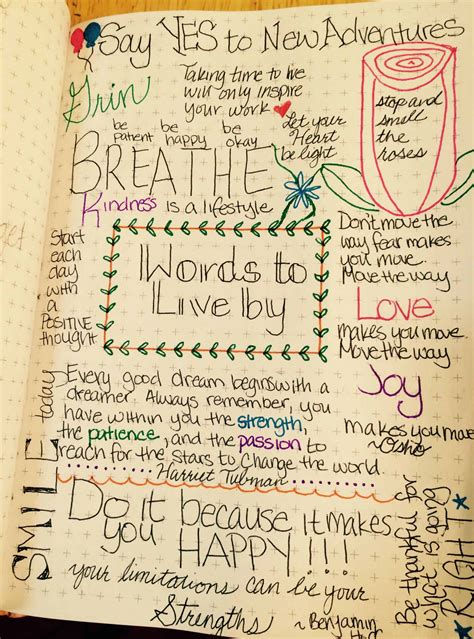 Say YES to New Adventures
Grin
Taking time to live
will only inspire
your work
Let your
Heart
be light
stop and
smell
the
roses
be patient
be happy
be okay
BREATHE
Kindness is a lifestyle
Start
each
day
with
a
POSITIVE
thought
Words to
Live by
Don't move the
way fear makes
you move.
Move the way
Love
makes you move.
Move the way
Joy
makes you move
~Osho
Every good dream begins with a
dreamer. Always remember, you
have within you the strength,
the patience, and the passion to
reach for the stars to change the world.
Harriet Tubman
SMILE today
Do it because it makes
you HAPPY!!!
your limitations can be your
Strengths
~ Benjamin
Be thankful for
what is going
RIGHT